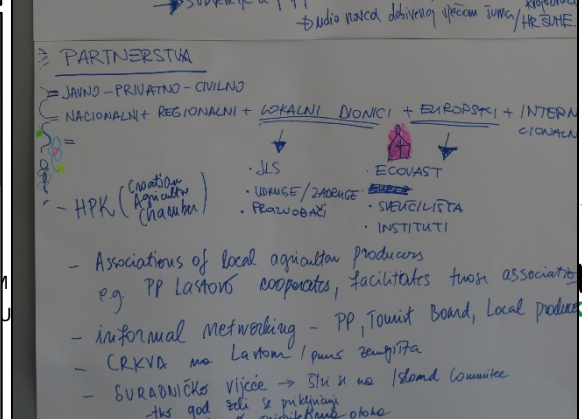 Dudio novca dobivenog sječom šuma/HR ŠUME
PARTNERSTVA
= JAVNO - PRIVATNO - CIVILNO
= NACIONALNI + REGIONALNI + LOKALNI DIONICI + EUROPSKI + INTERN
CIONALN
=
· JLS
· UDRUGE / ZADRUGE
· PROIZVOĐAČI
· ECOVAST
· SVEUČILIŠTA
· INSTITUTI
- HPK (Croatian
Agricultur
Chamber)
- Associations of local agricultan producers
e.g. PP Lastovo cooperates, facilitates those associatio
- informal networking - PP, Tourist Board, Local produce
- CRKVA na Lastovu / puno zemljišta
- SURADNIČKO vijeće → širi se na Island Commitee
tko god želi se priključiti
otoka
M
U